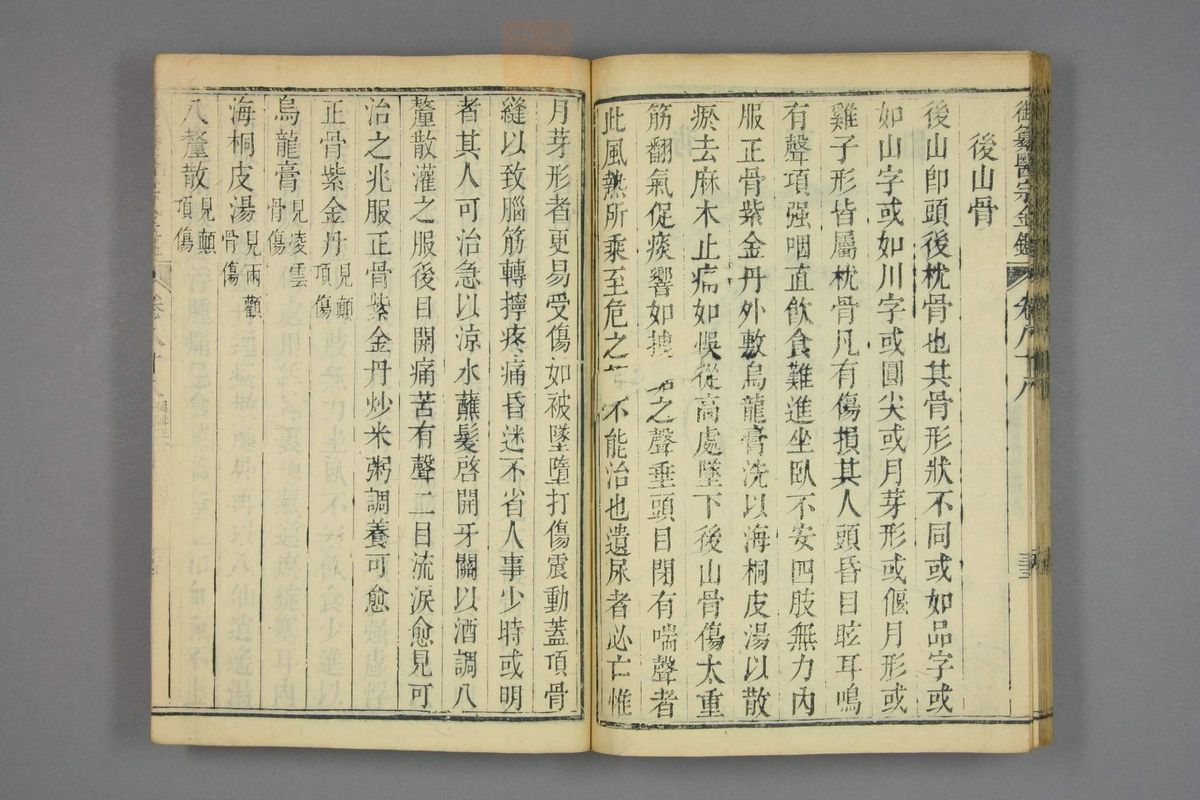 御纂醫宗金鑑 卷八十八
後山骨
後山卽頭後枕骨也其骨形狀不同或如品字或
如山字或如川字或圓尖或月芽形或偃月形或
雞子形皆屬枕骨凡有傷損其人頭昏目眩耳鳴
有聲項强咽直飮食難進坐臥不安四肢無力內
服正骨紫金丹外敷烏龍膏洗以海桐皮湯以散
瘀去麻木止痛如悞從高處墜下後山骨傷太重
筋翻氣促痰響如拽 之聲垂頭目閉有喘聲者
此風熱所乘至危之 不能治也遺尿者必亡惟
月芽形者更易受傷如被墜墮打傷震動蓋頂骨
縫以致腦筋轉擰疼痛昏迷不省人事少時或明
者其人可治急以涼水蘸髮啓開牙關以酒調八
釐散灌之服後目開痛苦有聲二目流淚愈見可
治之兆服正骨紫金丹炒米粥調養可愈
正骨紫金丹見顚頂傷
烏龍膏見凌雲骨傷
海桐皮湯見兩顴骨傷
八釐散見顚頂傷